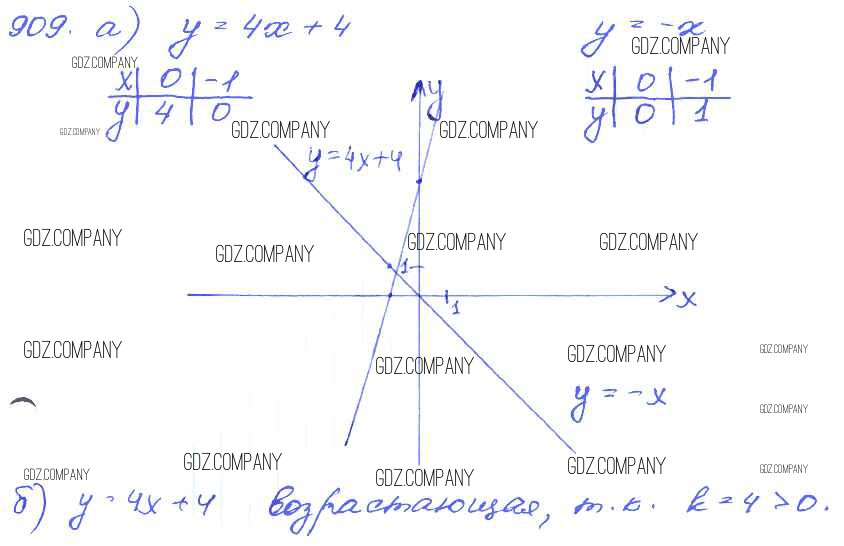 909. а) y = 4x + 4
y = -x
GDZ.COMPANY
GDZ.COMPANY
x | 0 | -1
y | 4 | 0
x | 0 | -1
y | 0 | 1
GDZ.COMPANY
GDZ.COMPANY
GDZ.COMPANY
y
y = 4x + 4
GDZ.COMPANY
GDZ.COMPANY
GDZ.COMPANY
GDZ.COMPANY
1
x
1
GDZ.COMPANY
GDZ.COMPANY
GDZ.COMPANY
GDZ.COMPANY
y = -x
GDZ.COMPANY
GDZ.COMPANY
GDZ.COMPANY
GDZ.COMPANY
GDZ.COMPANY
GDZ.COMPANY
б) y = 4x + 4 возрастающая, т.к. k = 4 > 0.